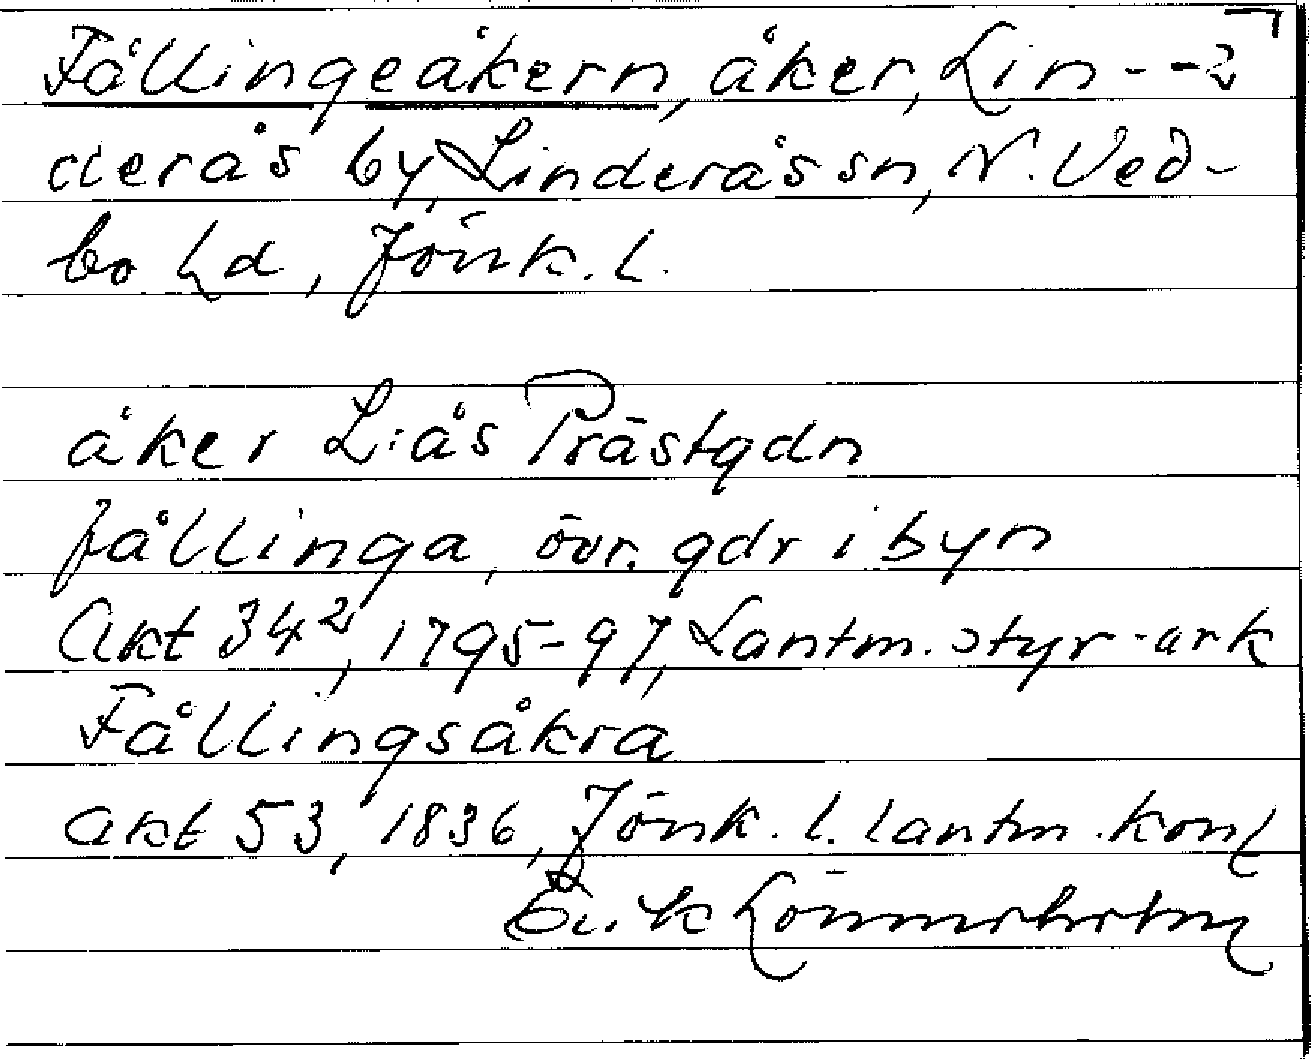 Fållingeåkern, åker, Lin-
derås by, Linderås sn, N. Ved-
bo hd, Jönk. l.
åker L:ås Prästgdn
fållinga, övr. gdr i byn
Akt 34², 1795-97, Lantm. styr. ark
Fållingsåkra
Akt 53, 1836, Jönk. l. lantm. kont
Erik